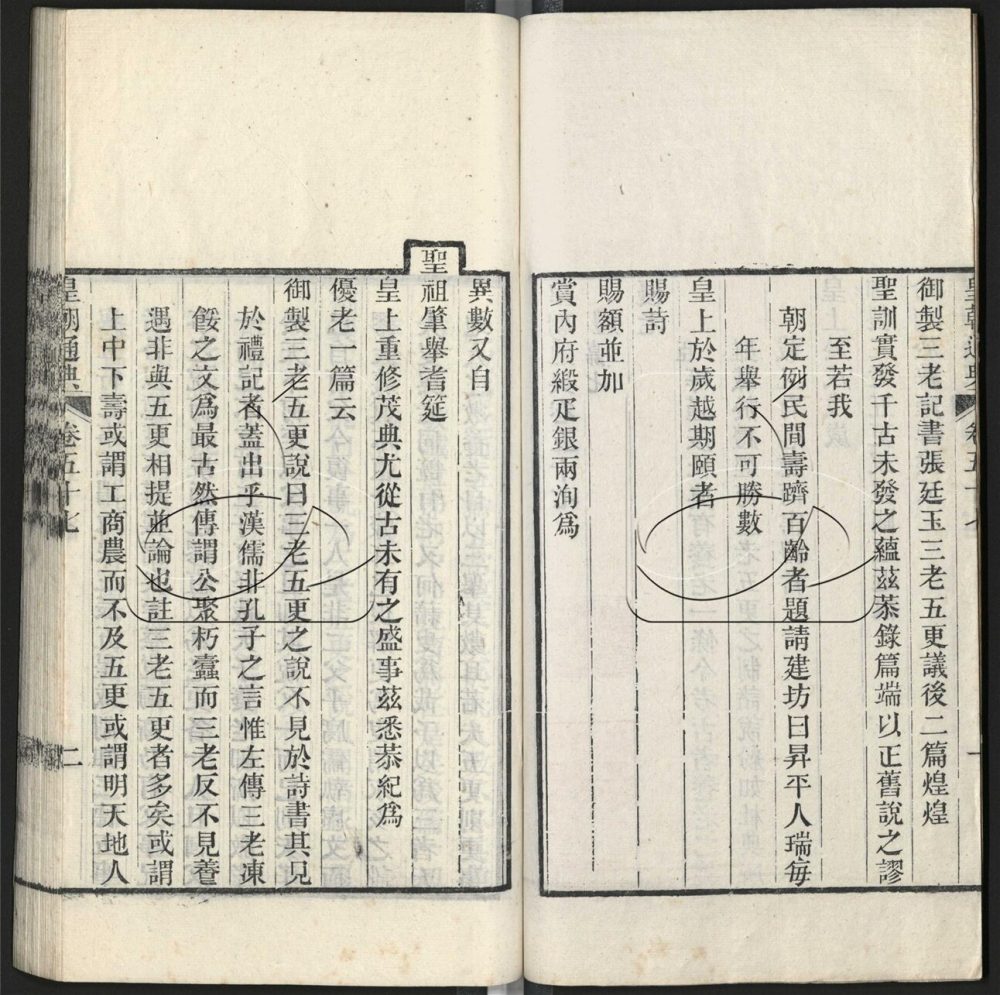 御製三老記書張廷玉三老五更議後二篇煌煌
聖訓實發千古未發之蘊茲恭錄篇端以正舊說之謬
至若我
朝定例民間壽躋百齡者題請建坊曰昇平人瑞每
年舉行不可勝數
皇上於歲越期頤者
賜詩
賜額並加
賞內府緞疋銀兩洵為
異數又自
聖祖肇舉耆筵
皇上重修茂典尤從古未有之盛事茲悉恭紀為
優老一篇云
御製三老五更說曰三老五更之說不見於詩書其見
於禮記者蓋出乎漢儒非孔子之言惟左傳三老凍
餒之文為最古然傳謂公聚朽蠹而三老反不見養
遇非與五更相提並論也註三老五更者多矣或謂
上中下壽或謂工商農而不及五更或謂明天地人
皇朝通典 卷五十七 二